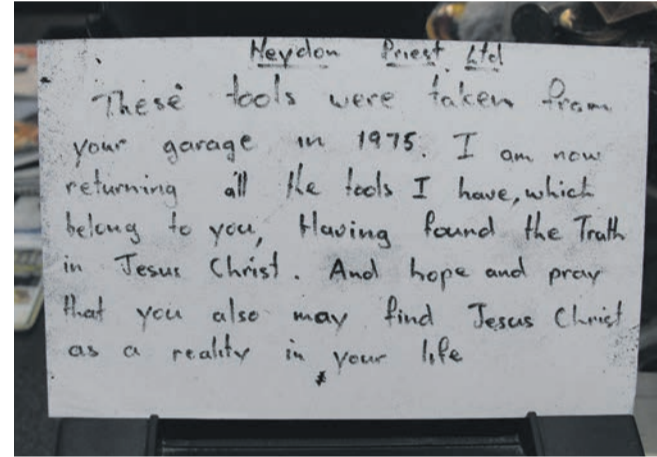 Heydon Priest Ltd
These tools were taken from
your garage in 1975. I am now
returning all the tools I have, which
belong to you, Having found the Truth
in Jesus Christ. And hope and pray
that you also may find Jesus Christ
as a reality in your life